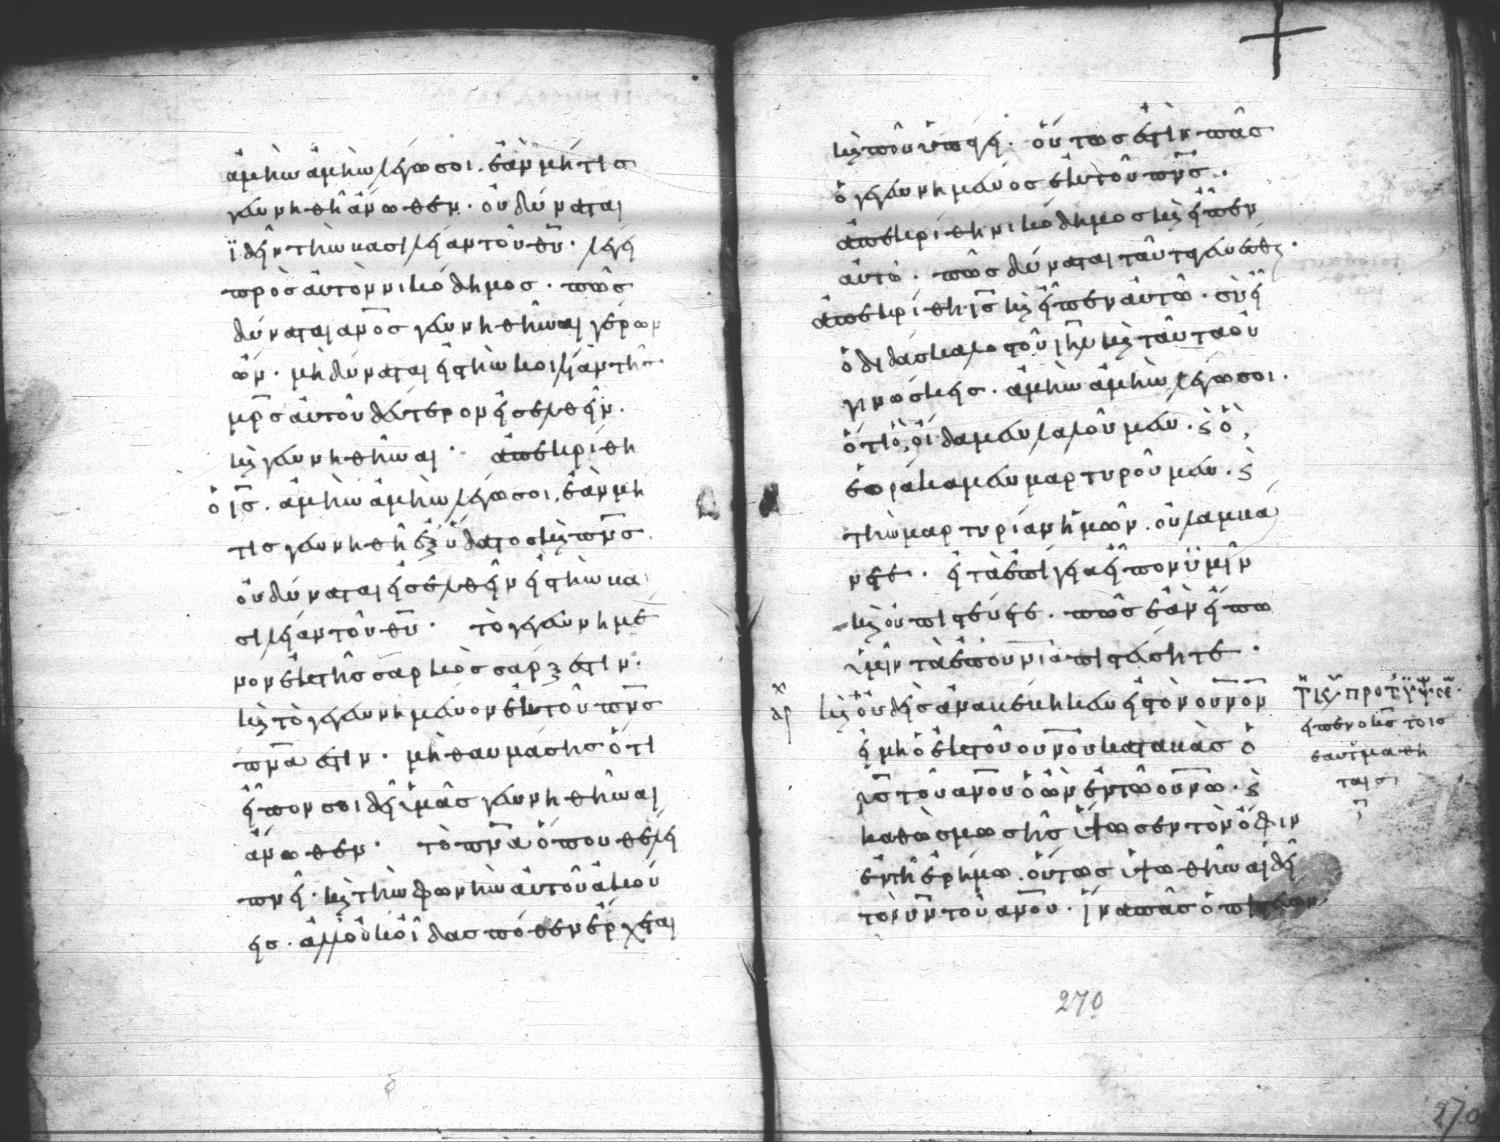 ἀμὴν ἀμὴν λέγω σοι. ἐὰν μή τις
γεννηθῆ ἄνωθεν. οὐ δύναται
ἰδεῖν τὴν βασιλείαν τοῦ θ̅υ̅. λέγει
πρὸς αὐτὸν νικόδημος. πῶς
δύναται ἄν̅ο̅ς̅ γεννηθῆναι γέρων
ὤν. μὴ δύναται εἰς τὴν κοιλίαν τῆς
μ̅ρ̅ς̅ αὐτοῦ δεύτερον εἰσελθεῖν.
κ̀ γεννηθῆναι. ἀπεκρίθη
ὁ ι̅ς̅. ἀμὴν ἀμὴν λέγω σοι. ἐὰν μή
τις γεννηθῆ ἐξ ὕδατος κ̀ π̅ν̅ς̅
οὐ δύναται εἰσελθεῖν εἰς τὴν βα
σιλείαν τοῦ θ̅υ̅. τὸ γεγεννημέ
νον ἐκ τῆς σαρκὸς σάρξ ἐστιν.
κ̀ τὸ γεγεννημένον ἐκ τοῦ π̅ν̅ς̅
π̅ν̅α̅ ἐστιν. μὴ θαυμάσης ὅτι
εἶπόν σοι δεῖ ὑμᾶς γεννηθῆναι
ἄνωθεν. τὸ π̅ν̅α̅ ὅπου θέλει
πνεῖ. κ̀ τὴν φωνὴν αὐτοῦ ἀκού
εις. ἀλλ' οὐκ οἶδας πόθεν ἔρχεται
κ̀ ποῦ ὑπάγει. οὕτως ἐστὶν πᾶς
ὁ γεγεννημένος ἐκ τοῦ π̅ν̅ς̅.
ἀπεκρίθη νικόδημος κ̀ εἶπεν
αὐτῶ. πῶς δύναται ταῦτα γενέσθ̀.
ἀπεκρίθη ι̅ς̅ κ̀ εἶπεν αὐτῶ. σὺ εἶ
ὁ διδάσκαλος τοῦ ι̅η̅λ̅ κ̀ ταῦτα οὐ
γινώσκεις. ἀμὴν ἀμὴν λέγω σοι.
ὅτι ὃ οἴδαμεν λαλοῦμεν. κ̀ ὃ
ἑωράκαμεν μαρτυροῦμεν. κ̀
τὴν μαρτυρίαν ἡμῶν. οὐ λαμβά
νετε. εἰ τὰ ἐπίγεια εἶπον ὑμῖν
κ̀ οὐ πιστεύετε. πῶς ἐὰν εἴπω
ὑμῖν τὰ ἐπουράνια πιστεύσητε.
κ̀ οὐδεὶς ἀναβέβηκεν εἰς τὸν ου̅ν̅ο̅ν̅
εἰ μὴ ὁ ἐκ τοῦ ου̅ν̅ο̅υ̅ καταβὰς ὁ
υ̅ς̅ τοῦ ἀν̅ο̅υ̅ ὁ ὢν ἐν τῶ ου̅ν̅ω̅. κ̀
καθὼς μωσῆς ὕψωσεν τὸν ὄφιν
ἐν τῆ ἐρήμω. οὕτως ὑψωθῆναι δεῖ
τὸν υ̅ν̅ τοῦ ἀν̅ο̅υ̅. ἵνα πᾶς ὁ
εἶπεν ὁ κ̅ς̅ τοῖς
ἑαυτοῦ μαθη
ταῖς
270
270